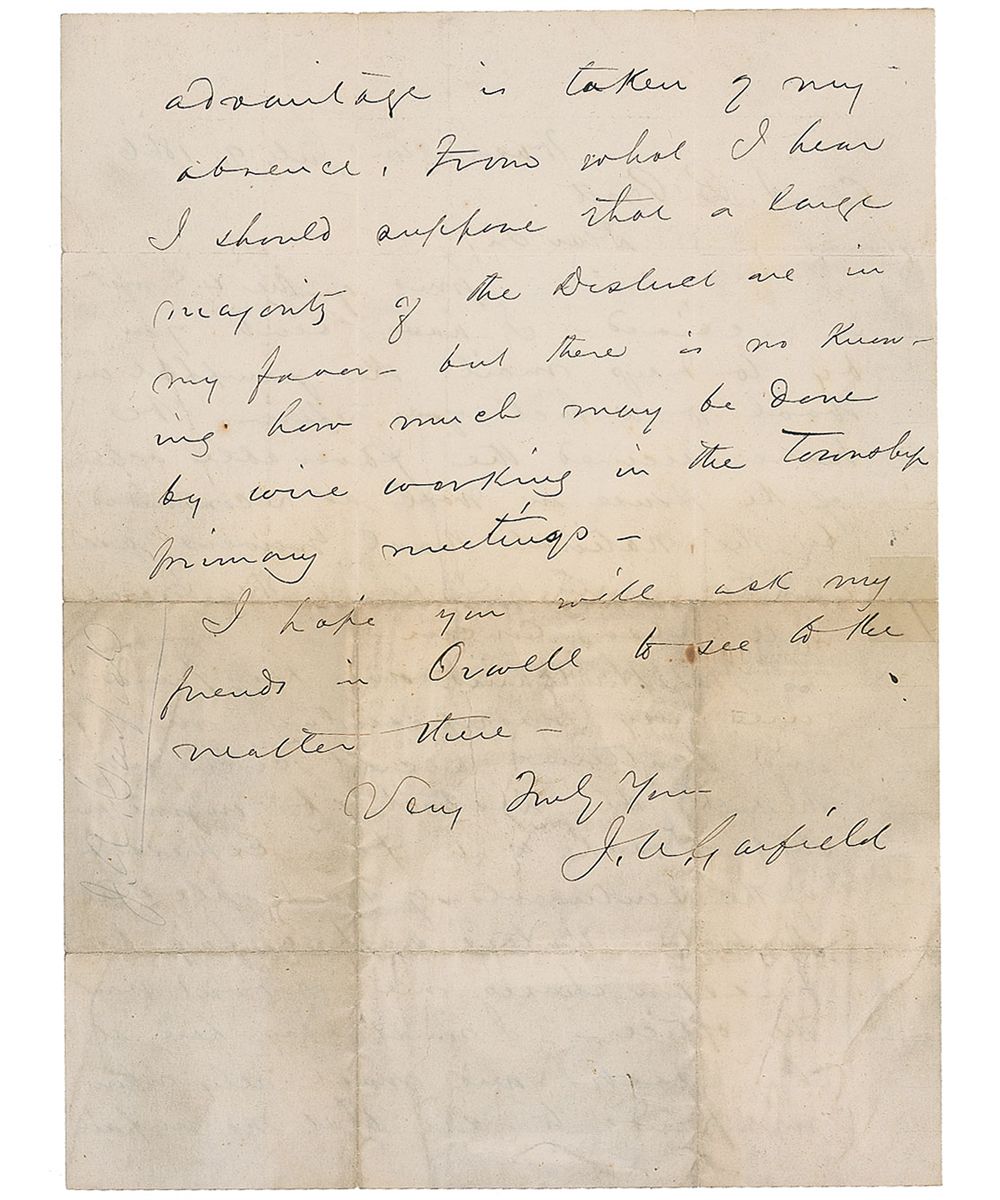 advantage is taken of my
absence. From what I hear
I should suppose that a large
majority of the District are in
my favor – but there is no know-
ing how much may be done
by wire working in the Township
primary meetings –
I hope you will ask my
friends in Orwell to see to the
matter there –
Very Truly Yours
J. A. Garfield